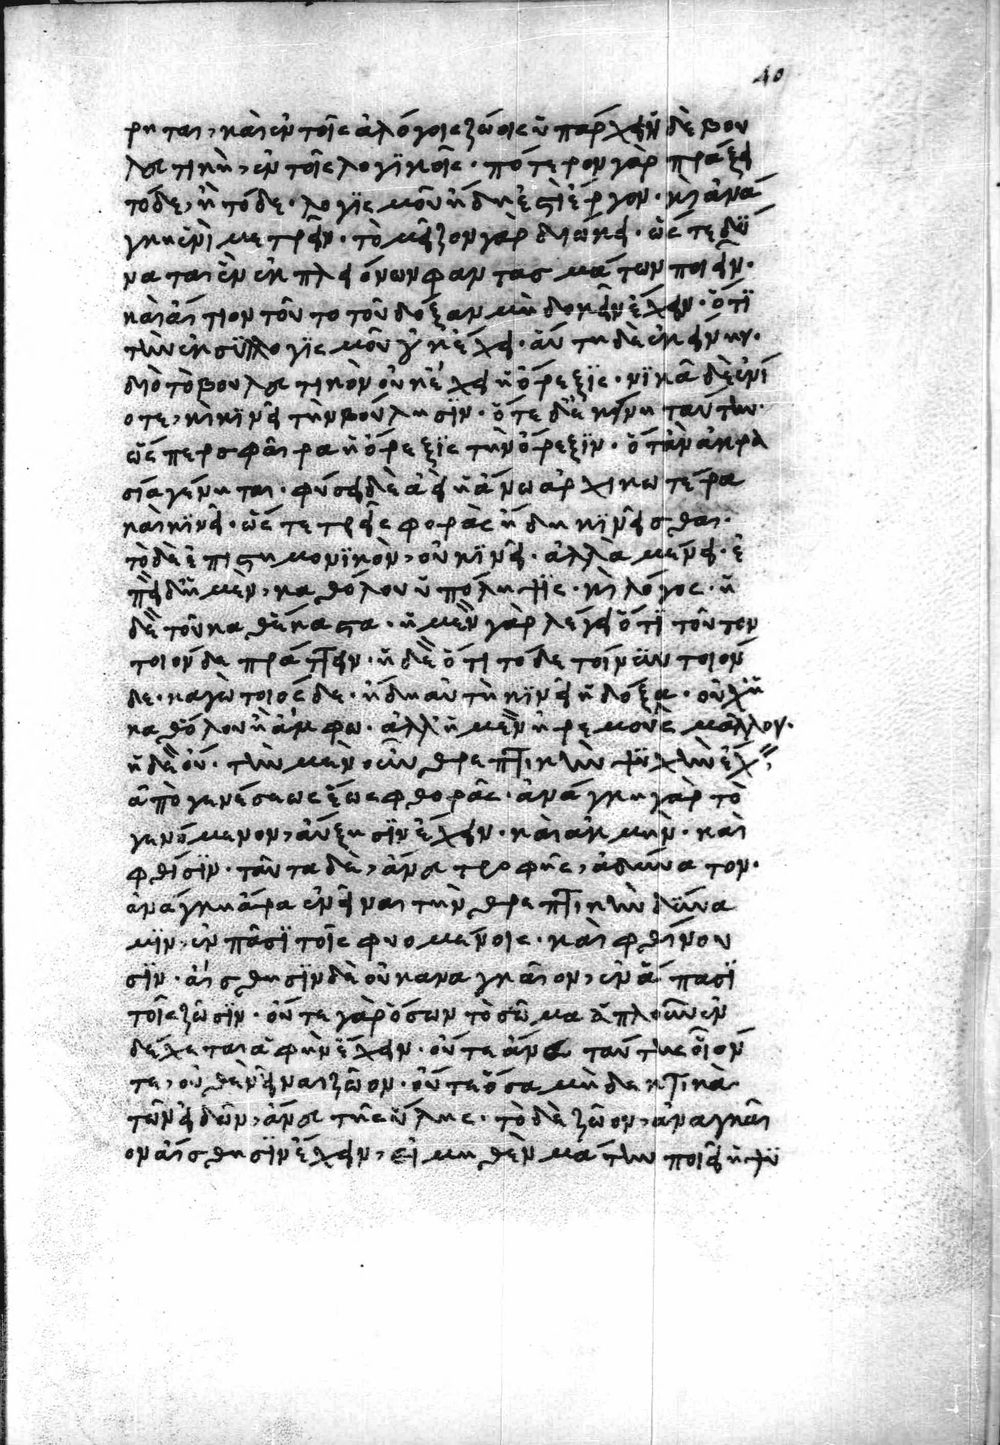 40
ρηται, καὶ ἐν τοῖς ἀλόγοις ζώοις ὑπάρχει· ἡ δὲ βου
λευτικὴ, ἐν τοῖς λογϊκοῖς· πότερον γὰρ πράξει
τόδε, ἢ τόδε· λογϊσμοῦ ἤδη ἐστὶ ἔργον· κὶ ἀνά
γκη ἑνὶ μετρεῖν· τὸ μεῖζον γὰρ διώκει· ὥστε δύ
ναται ἓν ἐκ πλειόνων φαντασμάτων ποιεῖν·
καὶ αἴτιον τοῦτο τοῦ δόξαν μὴ δοκεῖν ἔχειν· ὅτϊ
τὴν ἐκ συλλογϊσμοῦ οὐκ ἔχει· αὕτη δὲ ἐκείνην·
διὸ τὸ βουλευτικὸν οὐκ ἔχει ἡ ὄρεξϊς· νϊκᾶ δὲ ἐνί
οτε, κὶ κϊνεῖ τὴν βούλησϊν· ὁτὲ δ' ἐκείνη ταύτην·
ὥσπερ σφαῖρα ἡ ὄρεξϊς τὴν ὄρεξϊν· ὅταν ἀκρα
σία γένηται· φύσει δὲ ἀεὶ ἡ ἄνω ἀρχικωτέρα
καὶ κϊνεῖ· ὥστε τρεῖς φορὰς ἤδη κϊνεῖσθαι·
τὸ δὲ ἐπιστημονϊκὸν, οὐ κϊνεῖ· ἀλλὰ μένει· ἐ
πεὶ δ' ἡ μὲν, καθόλου ὑπόληψϊς· κὶ λόγος· ἡ
δὲ τοῦ καθέκαστα· ἡ μὲν γὰρ λέγει ὅτϊ τοῦτον
τοιόνδε πράττειν· ἡ δὲ ὅτι τόδε τοίνυν τοιόν
δε· κἀγὼ τοιόσδε· ἤδη αὐτὴ κϊνεῖ ἡ δόξα· οὐχ ἡ
καθόλου ἢ ἄμφω· ἀλλ' ἡ μὲν ἠρεμοῦσα μᾶλλον·
ἡ δὲ οὔ· τὴν μὲν οὖν θρεπτικὴν ψυχὴν ἔχ
ἀπὸ γενέσεως ἕως φθορᾶς· ἀνάγκη γὰρ τὸ
γενόμενον, αὔξησϊν ἔχειν· καὶ ἀκμὴν· καὶ
φθίσϊν· ταῦτα δὲ, ἄνευ τροφῆς, ἀδύνατον·
ἀνάγκη ἄρα ἐνεῖναι τὴν θρεπτικὴν δύνα
μϊν, ἐν πᾶσϊ τοῖς φυομένοις· καὶ φθίνου
σϊν· αἴσθησϊν δὲ οὐκ ἀναγκαῖον, ἐν ἅπασϊ
τοῖς ζῶσϊν· οὔτε γὰρ ὅσων τὸ σῶμα ἁπλοῦν ἐν
δέχεται ἁφὴν ἔχειν· οὔτε ἄνευ ταύτης οἷόν
τε, οὐθὲν εἶναι ζῶον· οὔτε ὅσα μὴ δεκτικὰ
τῶν εἰδῶν, ἄνευ τῆς ὕλης· τὸ δὲ ζῶον, ἀναγκαῖ
ον αἴσθησϊν ἔχειν, εἰ μηθὲν μάτην ποιεῖ ἡ φύ